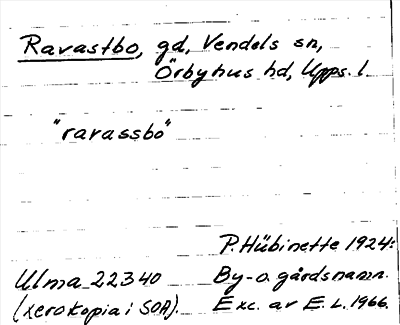 Ravastbo, gd, Vendels sn,
Örbyhus hd, Upps. l.
"ravassbo"
P. Hübinette 1924:
Ulma 22340 By- o. gårdsnamn.
(xerokopia i SOA). Exc. av E. L. 1966.